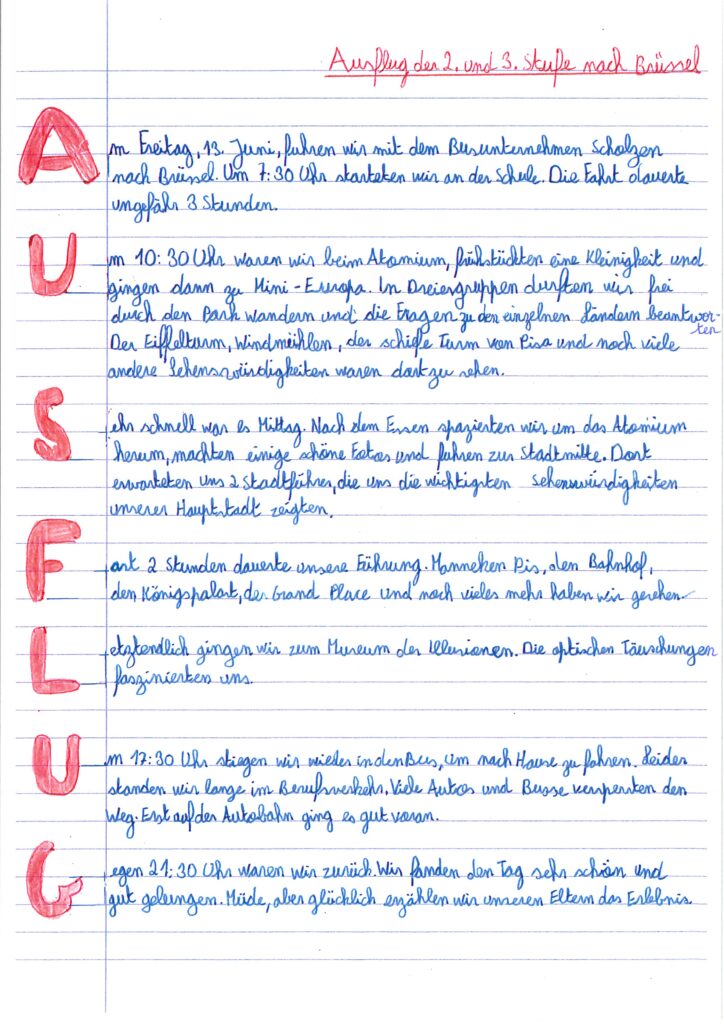 Ausflug der 2. und 3. Stufe nach Brüssel
Am Freitag, 13. Juni, fuhren wir mit dem Busunternehmen Scholzen
nach Brüssel. Um 7:30 Uhr starteten wir an der Schule. Die Fahrt dauerte
ungefähr 3 Stunden.
Um 10:30 Uhr waren wir beim Atomium, frühstückten eine Kleinigkeit und
gingen dann zu Mini-Europa. In Dreiergruppen durften wir frei
durch den Park wandern und die Fragen zu den einzelnen Ländern beantwor-
ten
Der Eiffelturm, Windmühlen, der schiefe Turm von Pisa und noch viele
andere Sehenswürdigkeiten waren dort zu sehen.
Sehr schnell war es Mittag. Nach dem Essen spazierten wir um das Atomium
herum, machten einige schöne Fotos und fuhren zur Stadtmitte. Dort
erwarteten uns 2 Stadtführer, die uns die wichtigsten Sehenswürdigkeiten
unserer Hauptstadt zeigten.
Fast 2 Stunden dauerte unsere Führung. Manneken Pis, den Bahnhof,
den Königspalast, der Grand Place und noch vieles mehr haben wir gesehen.
Letztendlich gingen wir zum Museum der Illusionen. Die optischen Täuschungen
faszinierten uns.
Um 17:30 Uhr stiegen wir wieder in den Bus, um nach Hause zu fahren. Leider
standen wir lange im Berufsverkehr. Viele Autos und Busse versperrten den
Weg. Erst auf der Autobahn ging es gut voran.
Gegen 21:30 Uhr waren wir zurück. Wir fanden den Tag sehr schön und
gut gelungen. Müde, aber glücklich erzählen wir unseren Eltern das Erlebnis.